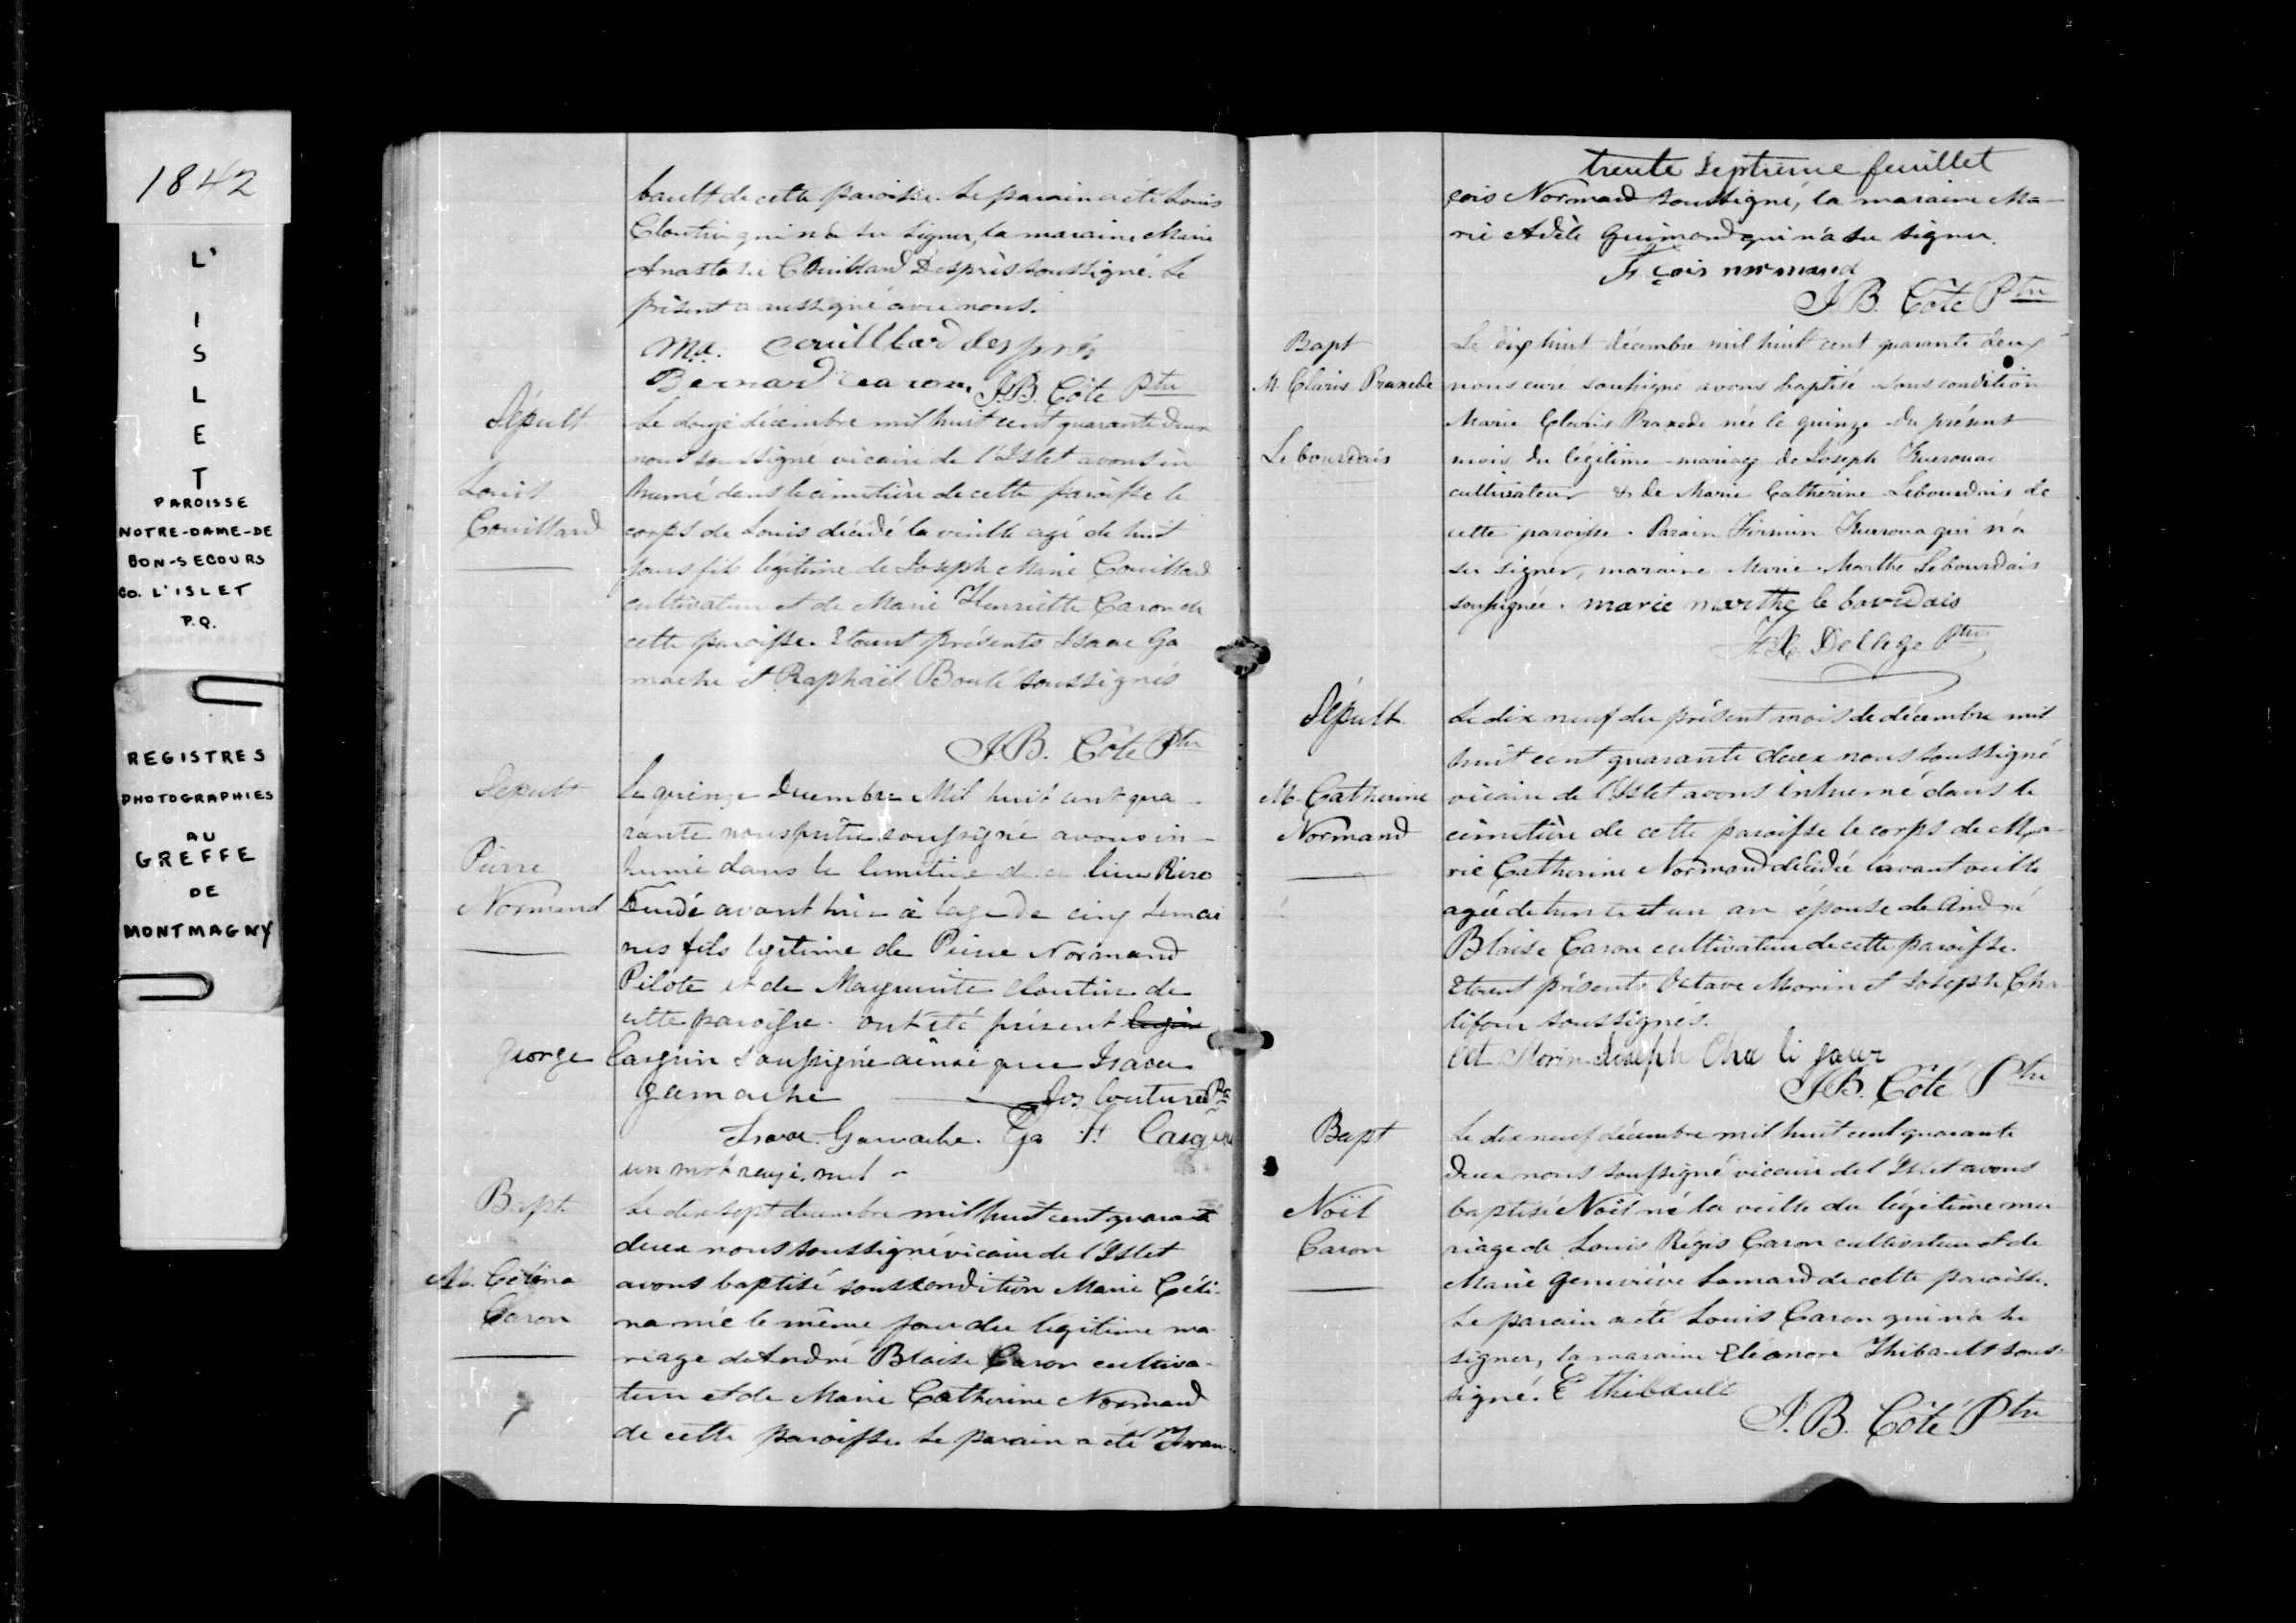 1842
L'
I
S
L
E
T
PAROISSE
NOTRE-DAME-DE
BON-SECOURS
CO. L'ISLET
P.Q.
REGISTRES
PHOTOGRAPHIES
AU
GREFFE
DE
MONTMAGNY
bault de cette paroisse. Le parain a été Louis
Cloutier qui n'a su signer, la maraine Marie
Anastasie Couillard Desprès soussigné. Le
présent a aussigné avec nous.
Ma. Couillard des prés
Bernard caron, J.B. Côté Ptre
Sépult
Louis
Couillard
Le douze décembre mil huit cent quarante deux
nous soussigné vicaire de l'Islet avons in
humé dans le cimetière de cette paroisse le
corps de Louis décédé la veille agé de huit
jours fils légitime de Joseph Marie Couillard
cultivateur et de Marie Henriette Caron de
cette paroisse. Etaient présents Isaac Ga
mache et Raphaël Boulé soussignés
J.B. Côté Ptre
Sepult
Pierre
Normand
Le quinze Decembre Mil huit cent qua-
rante nous prêtre soussigné avons in-
humé dans le cimetiere de ce lieu Piere
Décédé avant hier à l'age de cinq semai
nes fils légitime de Pierre Normand
Pilote et de Marguerite Cloutier de
cette paroisse. ont été présent
george Casgrin soussigné ainsi que Isaac
gamache Jos Couture Ptre
Isaac Gamache. Casgrin
un mot rayé, nul
Bapt
M. Célina
Caron
Le dix sept decembre mil huit cent quarante
deux nous soussigné vicaire de l'Islet
avons baptisé sous condition Marie Céli-
na née le même jour du légitime ma
riage de André Blaise Caron cultiva-
teur et de Marie Catherine Normand
de cette paroisse. Le parain a été Fran-
trente Septième feuillet
çois Normand soussigné, la maraine Ma-
rie Adèle Guimond qui n'a su signer.
Frçois normand
J.B. Côté Ptre
Bapt
M. Claris Praxede
Lebourdais
Le dix huit décembre mil huit cent quarante deux
nous curé soussigné avons baptisé sous condition
Marie Claris Praxede née le quinze du présent
mois du légitime mariage de Joseph Kuerouac
cultivateur & de Marie Catherine Lebourdais de
cette paroisse. Parain Firmin Kueroua qui n'a
su signer, maraine Marie Marthe Lebourdais
soussignée. marie marthe le bourdais
F.X. Delage Ptre
Sépult.
M. Catherine
Normand
Le dix neuf du présent mois de décembre mil
huit cent quarante deux nous soussigné
vicaire de l'Islet avons inhumé dans le
cimetière de cette paroisse le corps de Ma-
rie Catherine Normand décédée l'avant veille
agée de trente et un an épouse de André
Blaise Caron cultivateur de cette paroisse.
Etaient présents Octave Morin et Joseph Cha
lifour soussignés.
Oct Morin Joseph Cha li four
J.B. Côté Ptre
Bapt
Noël
Caron
Le dix neuf décembre mil huit cent quarante
deux nous soussigné vicaire de l'Islet avons
baptisé Noël né la veille du légitime ma
riage de Louis Régis Caron cultivateur et de
Marie Geneviève Lemard de cette paroisse.
Le parain a été Louis Caron qui n'a su
signer, la maraine Eléonore Thibault sous-
signé. E thibault
J.B. Côté Ptre